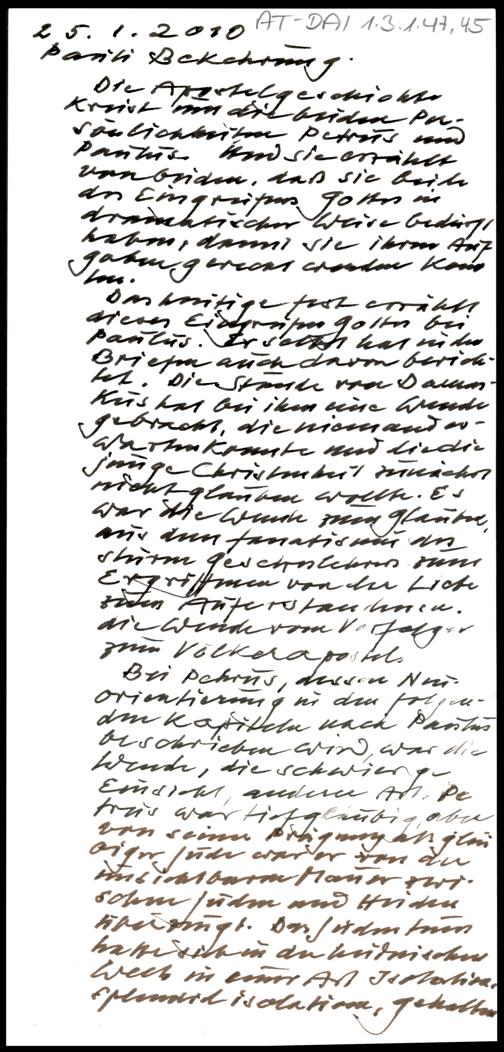 25.1.2010 AT-DAI 1.3.1.47,45
Pauli Bekehrung.
Die Apostelgeschichte
kreist um die beiden Per-
sönlichkeiten Petrus und
Paulus. Und sie erzählt
von beiden, daß sie beide
des Eingreifens Gottes in
dramatischer Weise bedurft
haben, damit sie ihren Auf-
gaben gerecht werden konn-
ten.
Das heutige Fest erzählt
dieses Eingreifen Gottes bei
Paulus. Er selbst hat in den
Briefen auch davon berich-
tet. Die Stunde von Damas-
kus hat bei ihm eine Wende
gebracht, die niemand er-
warten konnte und die die
junge Christenheit zunächst
nicht glauben wollte. Es
war die Wende zum Glauben,
aus dem Fanatismus des
sturen Gesetzeslehrers zum
Ergriffenen von der Liebe
zum Auferstandenen.
die Wende vom Verfolger
zum Völkerapostel.
Bei Petrus, dessen Neu-
orientierung in den folgen-
den Kapiteln nach Paulus
beschrieben wird, war die
Wende, die schwierige
Einsicht, anderer Art. Pe-
trus war tiefgläubig, aber
von seiner Prägung als gläu-
biger Jude war er von der
unsichtbaren Mauer zwi-
schen Juden und Heiden
überzeugt. Das Judentum
hatte sich in der heidnischen
Welt in einer Art Isolation,
splendid isolation, gehalten